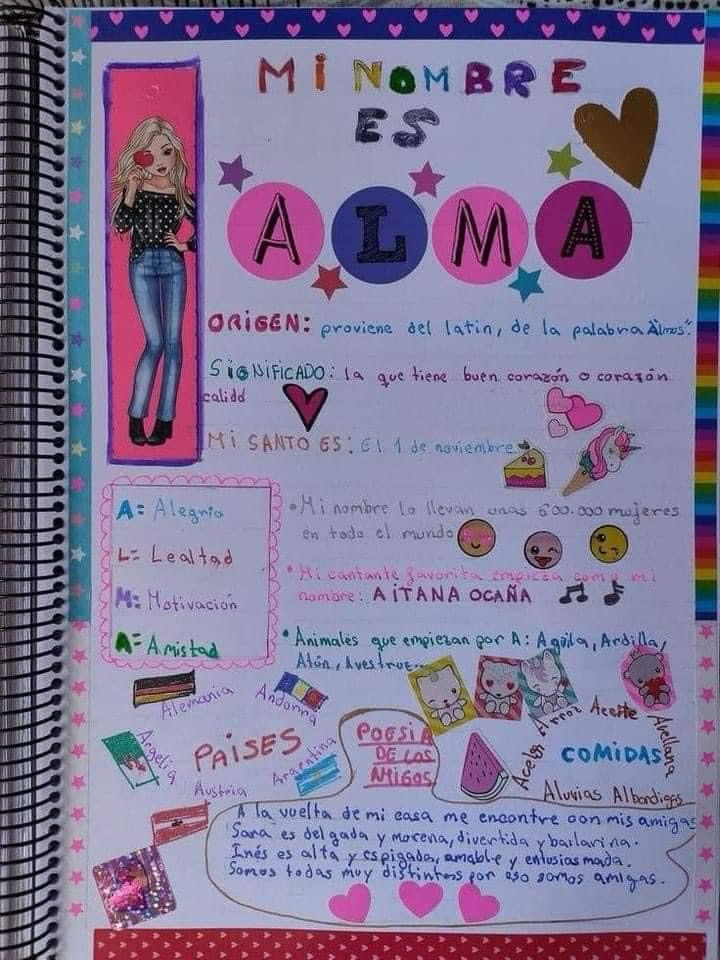 MI NOMBRE
ES
ALMA
ORIGEN: proviene del latin, de la palabra Àlmos".
SIGNIFICADO: la que tiene buen corazón o corazón
calido
MI SANTO ES: El 1 de noviembre
A= Alegria
L= Lealtad
M= Motivación
A= Amistad
• Mi nombre lo llevan unas 600.000 mujeres
en todo el mundo
• Mi cantante favorita empieza como mi
nombre: AITANA OCAÑA
• Animales que empiezan por A: Aguila, Ardilla,
Atún, Avestruz...
Alemania
Andorra
Argelia
PAISES
Argentina
Austria
POESIA
DE LOS
AMIGOS
Acelga
Arroz
Aceite
Avellana
COMIDAS
Aluvias Albondigas
A la vuelta de mi casa me encontre con mis amigas
Sara es delgada y morena, divertida y bailarina.
Inés es alta y espigada, amable y entusiasmada.
Somos todas muy distintas por eso somos amigas.